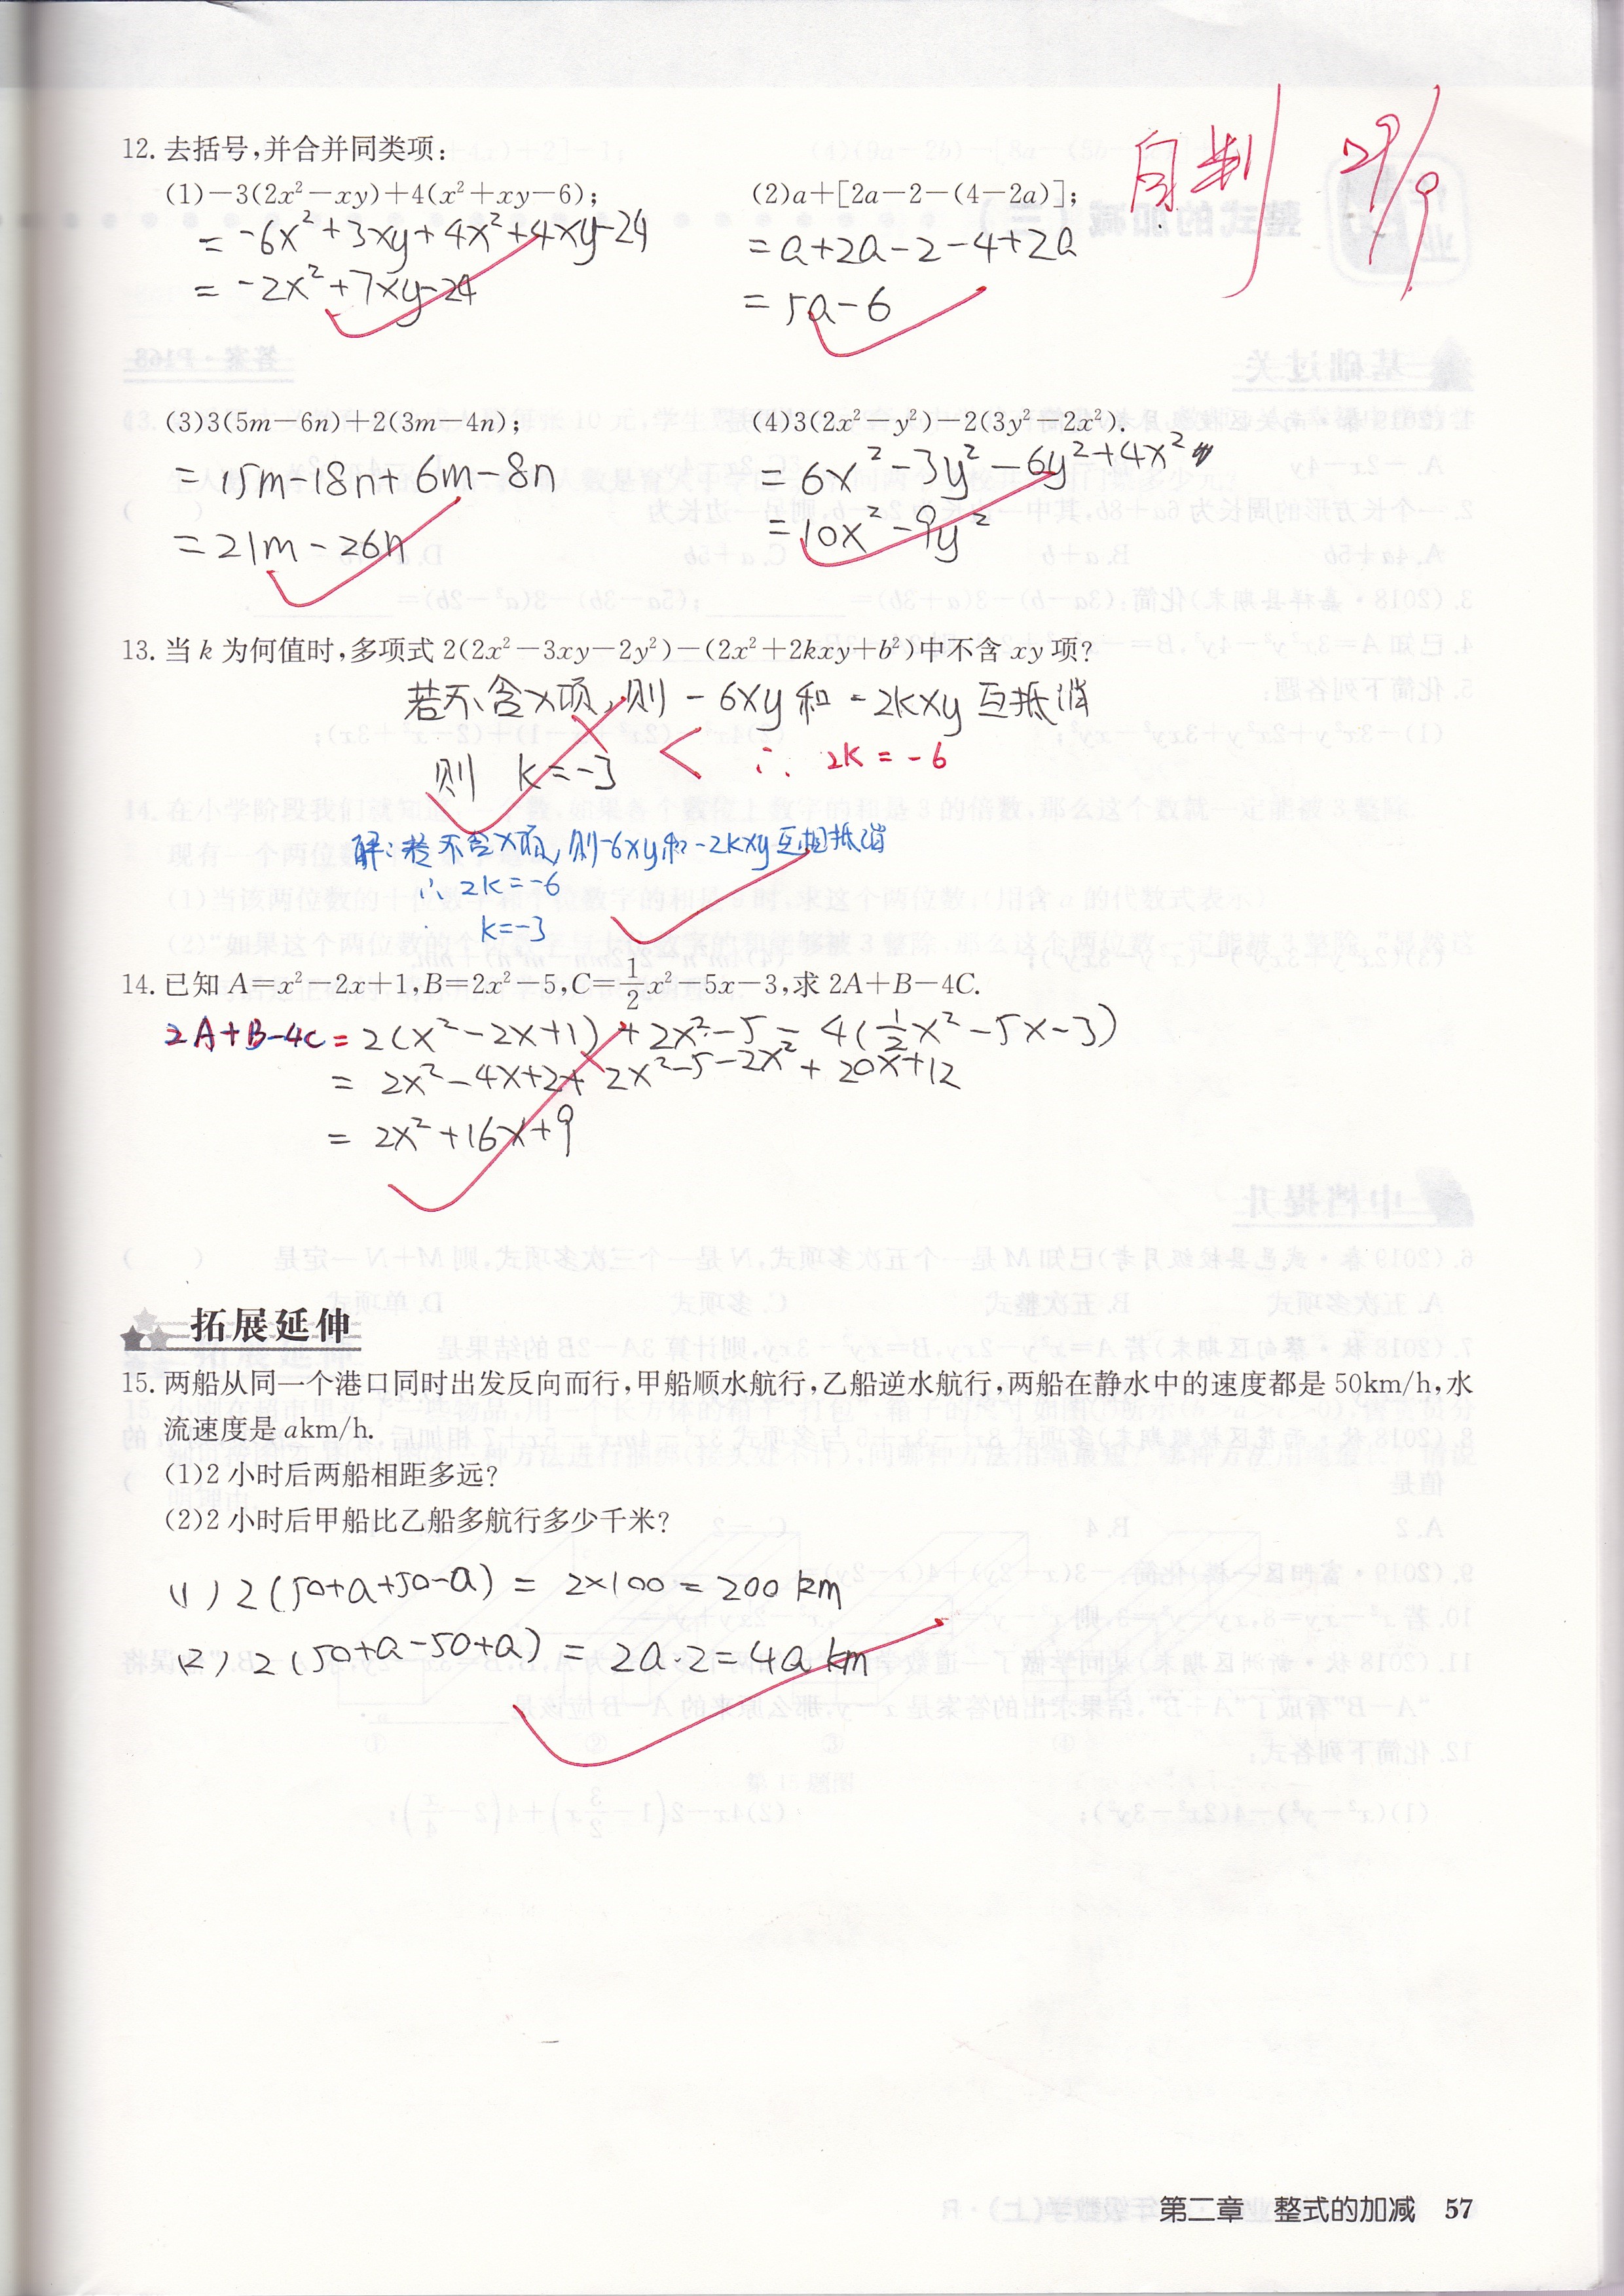 自判 29/9
12. 去括号,并合并同类项:
(1)-3(2x²-xy)+4(x²+xy-6);
(2)a+[2a-2-(4-2a)];
= -6x²+3xy+4x²+4xy-24
= -2x²+7xy-24
= a+2a-2-4+2a
= 5a-6
(3)3(5m-6n)+2(3m-4n);
(4)3(2x²-y²)-2(3y²-2x²).
= 15m-18n+6m-8n
= 21m-26n
= 6x²-3y²-6y²+4x²
= 10x²-9y²
13. 当 k 为何值时,多项式 2(2x²-3xy-2y²)-(2x²+2kxy+b²)中不含 xy 项?
若不含x项,则 -6xy 和 -2kxy 互抵消
则 k=-3
∴ 2k=-6
解:若不含x项,则-6xy和-2kxy互相抵消
∴ 2k=-6
k=-3
14. 已知 A=x²-2x+1,B=2x²-5,C=1/2x²-5x-3,求 2A+B-4C.
2A+B-4C = 2(x²-2x+1)+2x²-5-4(1/2x²-5x-3)
= 2x²-4x+2+2x²-5-2x²+20x+12
= 2x²+16x+9
拓展延伸
15. 两船从同一个港口同时出发反向而行,甲船顺水航行,乙船逆水航行,两船在静水中的速度都是 50km/h,水
流速度是 akm/h.
(1)2 小时后两船相距多远?
(2)2 小时后甲船比乙船多航行多少千米?
(1) 2(50+a+50-a) = 2×100 = 200 km
(2) 2(50+a-50+a) = 2a·2 = 4a km
第二章 整式的加减 57